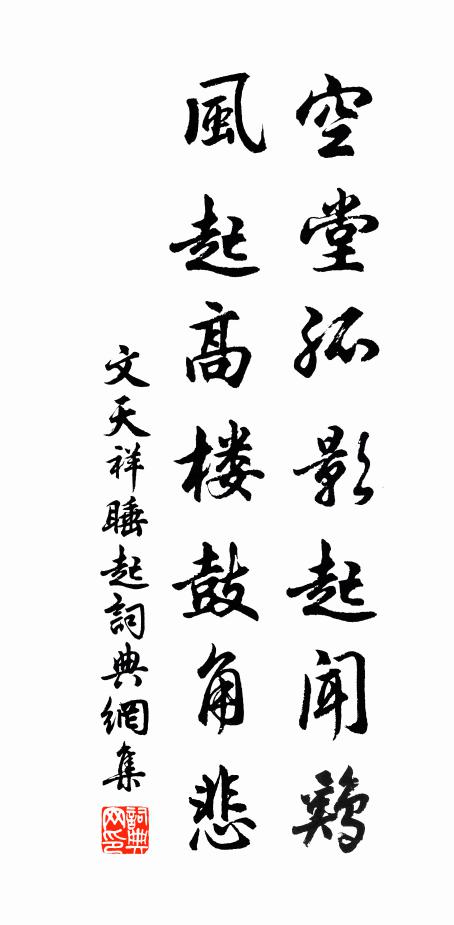 空堂孤影起闻鷄
風起高楼鼓角悲
文天祥睡起詞典網集
詞典网印